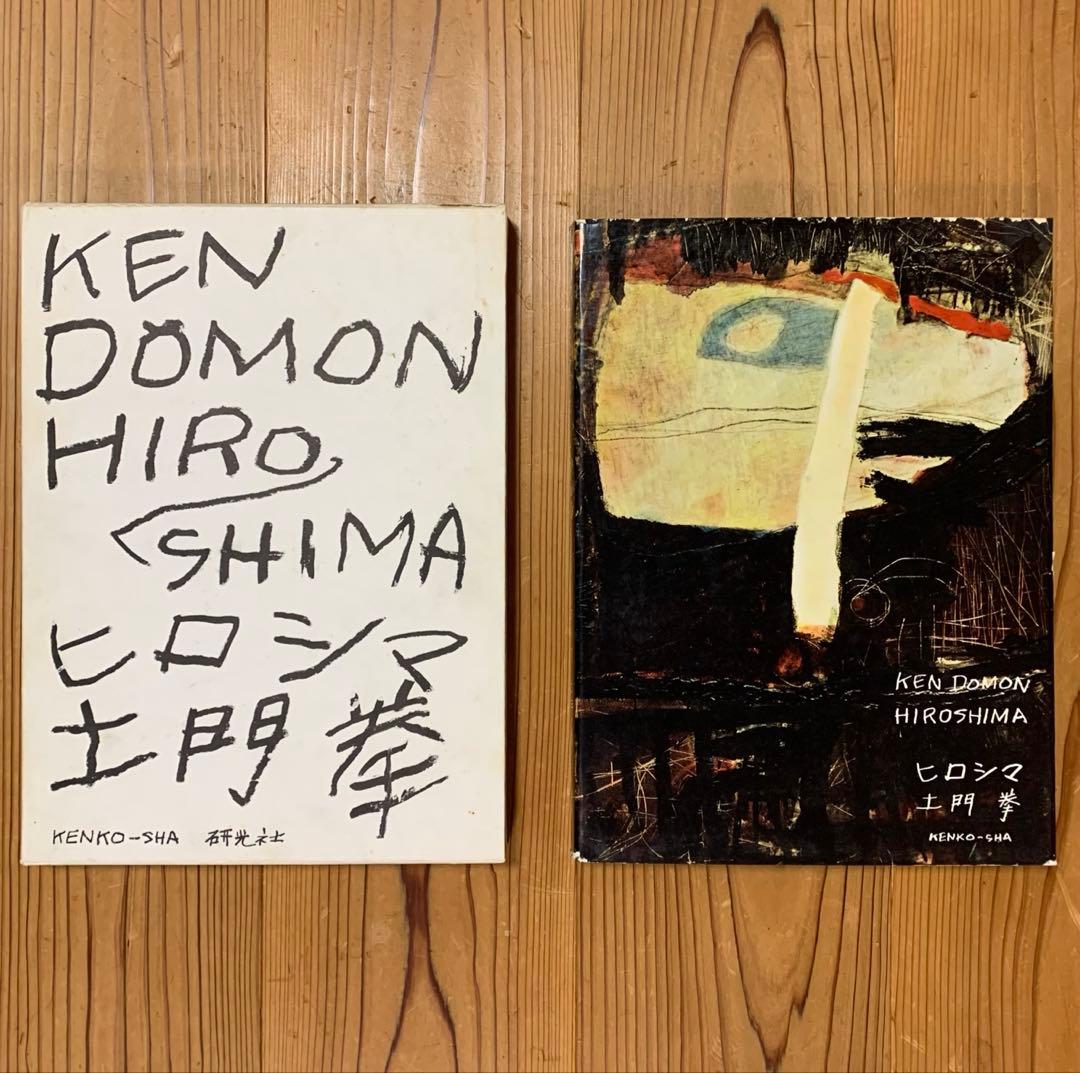 KEN
DOMON
HIRO
SHIMA
ヒロシマ
土門 拳
KENKO-SHA 研光社
KEN DOMON
HIROSHIMA
ヒロシマ
土門 拳
KENKO-SHA